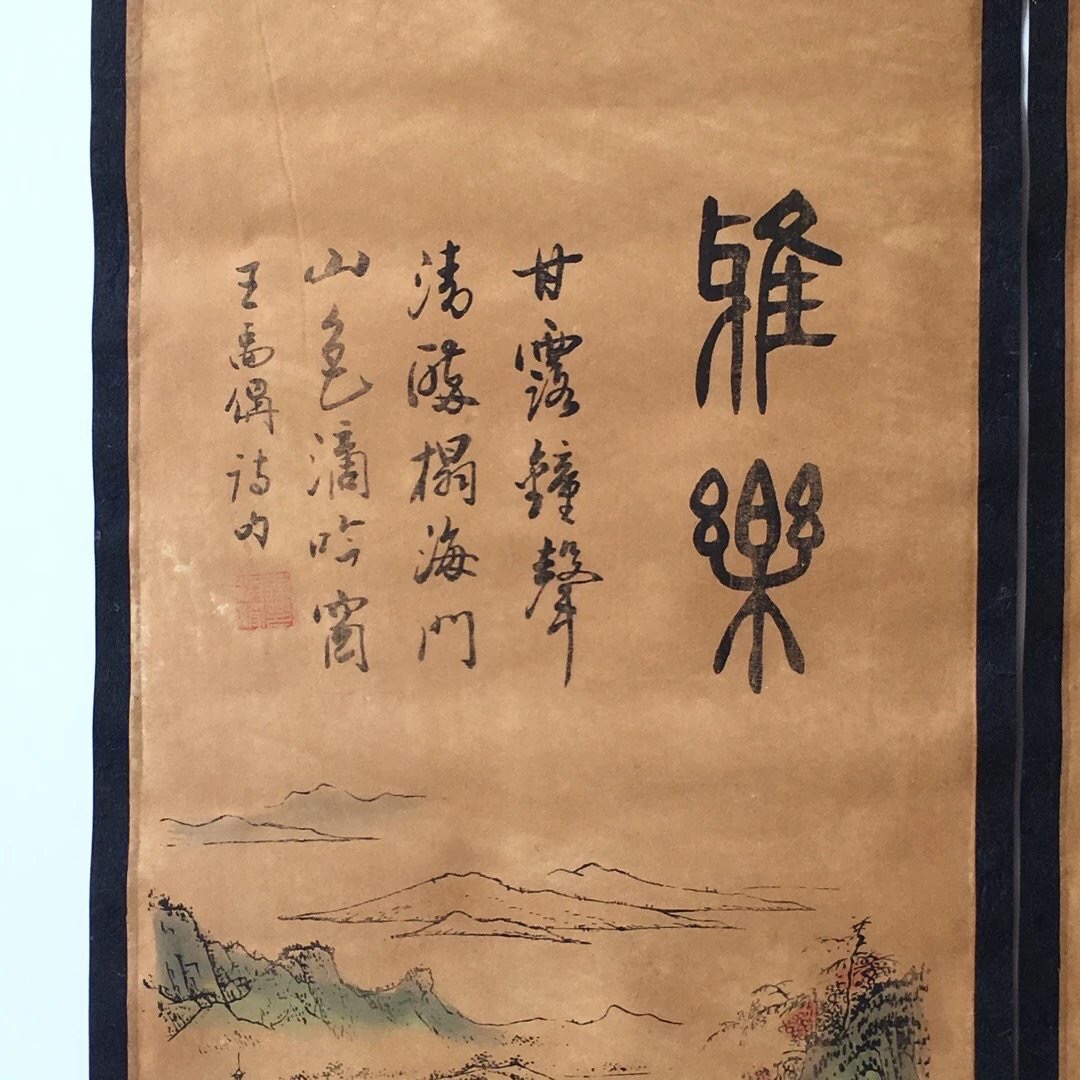 雅樂
甘露鐘聲
清醉榻海門
山色滴吟窗
王禹偁詩句